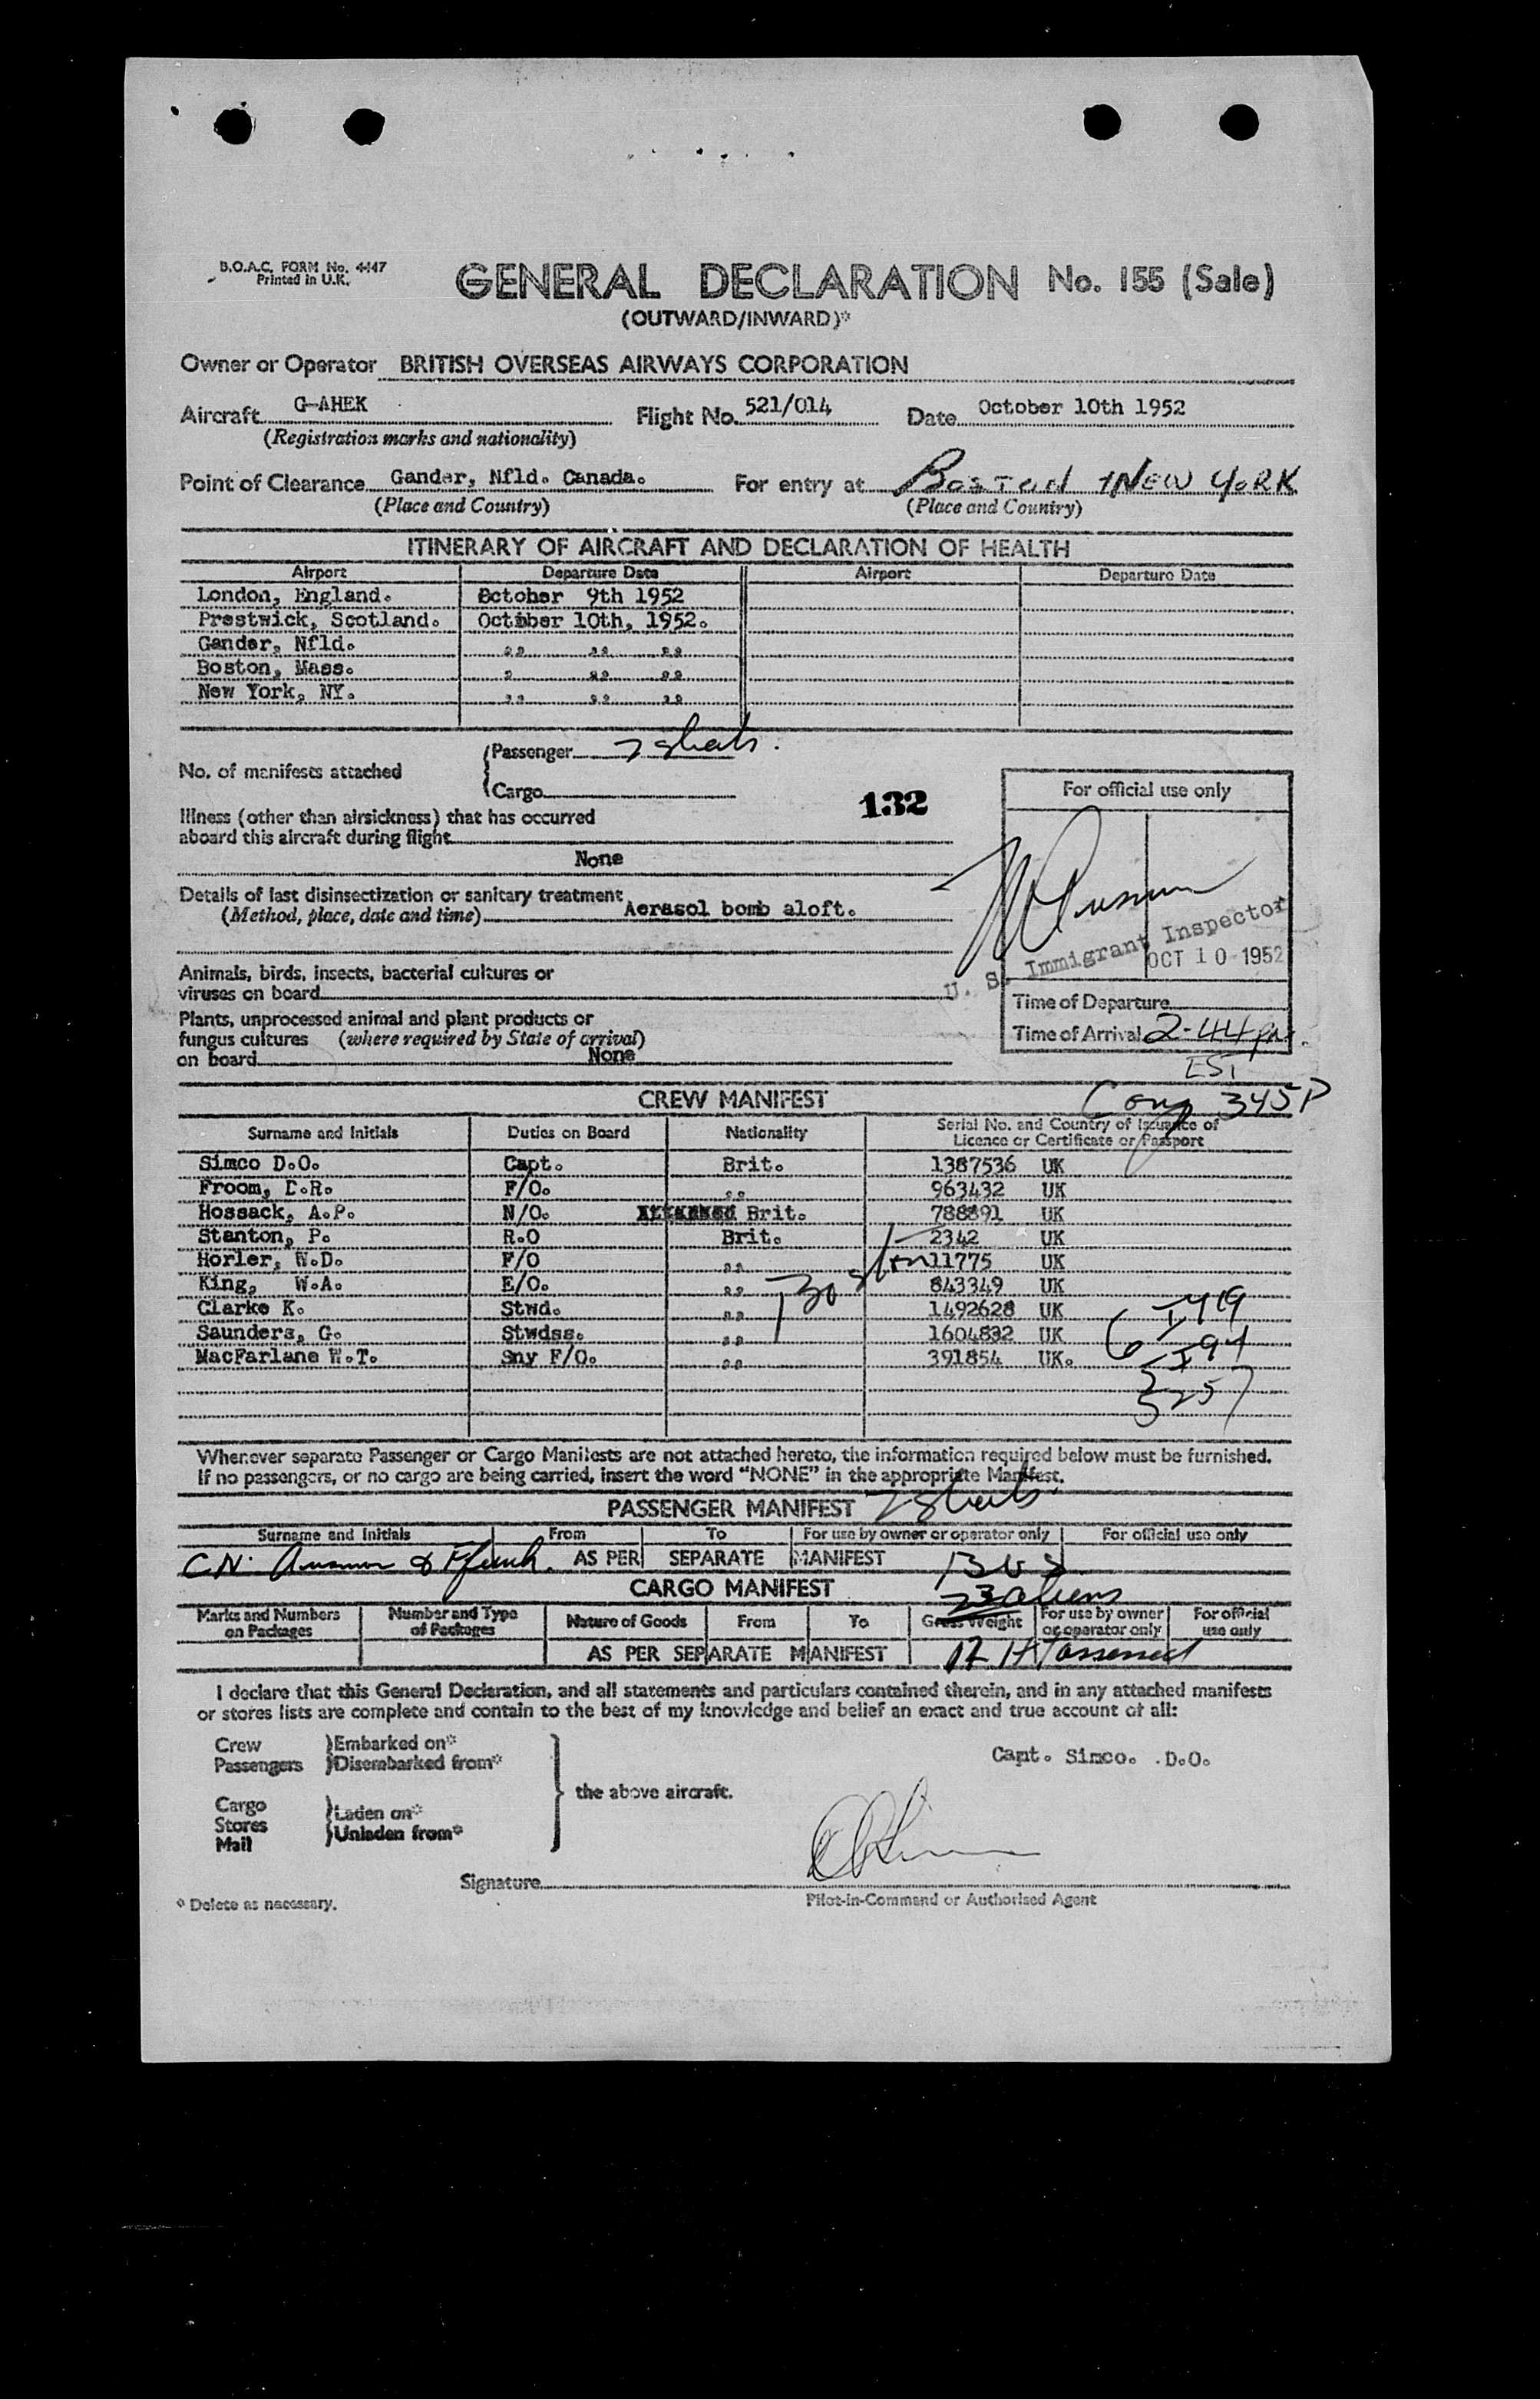 B.O.A.C. FORM No. 4447
Printed in U.K.
GENERAL DECLARATION No. 155 (Sale)
(OUTWARD/INWARD)*
Owner or Operator BRITISH OVERSEAS AIRWAYS CORPORATION
Aircraft G-AHEK Flight No. 521/014 Date October 10th 1952
(Registration marks and nationality)
Point of Clearance Gander, Nfld. Canada. For entry at Boston NEW YORK
(Place and Country) (Place and Country)
ITINERARY OF AIRCRAFT AND DECLARATION OF HEALTH
Airport Departure Date Airport Departure Date
London, England. October 9th 1952
Prestwick, Scotland. October 10th, 1952.
Gander, Nfld. ,, ,, ,,
Boston, Mass. , ,, ,,
New York, NY. ,, ,, ,,
Passenger 7 sheets.
No. of manifests attached
Cargo
132
For official use only
Illness (other than airsickness) that has occurred
aboard this aircraft during flight
None
Details of last disinsectization or sanitary treatment
(Method, place, date and time) Aerasol bomb aloft.
U. S. Immigrant Inspector
OCT 10 1952
Animals, birds, insects, bacterial cultures or
viruses on board
Time of Departure
Plants, unprocessed animal and plant products or
fungus cultures (where required by State of arrival)
on board None
Time of Arrival 2-44 pm.
EST
CREW MANIFEST
Comp 345P
Surname and Initials Duties on Board Nationality Serial No. and Country of Issuance of
Licence or Certificate or Passport
Simco D.O. Capt. Brit. 1387536 UK
Froom, D.R. F/O. ,, 963432 UK
Hossack, A.P. N/O. Brit. 788891 UK
Stanton, P. R.O Brit. 2342 UK
Horler, W.D. F/O ,, 11775 UK
King, W.A. E/O. ,, 843349 UK
Boston
Clarke K. Stwd. ,, 1492628 UK
Saunders, G. Stwdss. ,, 1604832 UK
MacFarlane W.T. Sny F/O. ,, 391854 UK.
6 I 419
I 94
257
Whenever separate Passenger or Cargo Manifests are not attached hereto, the information required below must be furnished.
If no passengers, or no cargo are being carried, insert the word "NONE" in the appropriate Manifest.
PASSENGER MANIFEST 7 sheets.
Surname and Initials From To For use by owner or operator only For official use only
C.N. AS PER SEPARATE MANIFEST
CARGO MANIFEST
23 aliens
Marks and Numbers on Packages Number and Type of Packages Nature of Goods From To Gross Weight For use by owner or operator only For official use only
AS PER SEPARATE MANIFEST 17 HT assessed
I declare that this General Declaration, and all statements and particulars contained therein, and in any attached manifests
or stores lists are complete and contain to the best of my knowledge and belief an exact and true account of all:
Crew Embarked on*
Passengers Disembarked from*
Capt. Simco. .D.O.
the above aircraft.
Cargo
Stores Laden on*
Mail Unladen from*
Signature
* Delete as necessary.
Pilot-in-Command or Authorised Agent